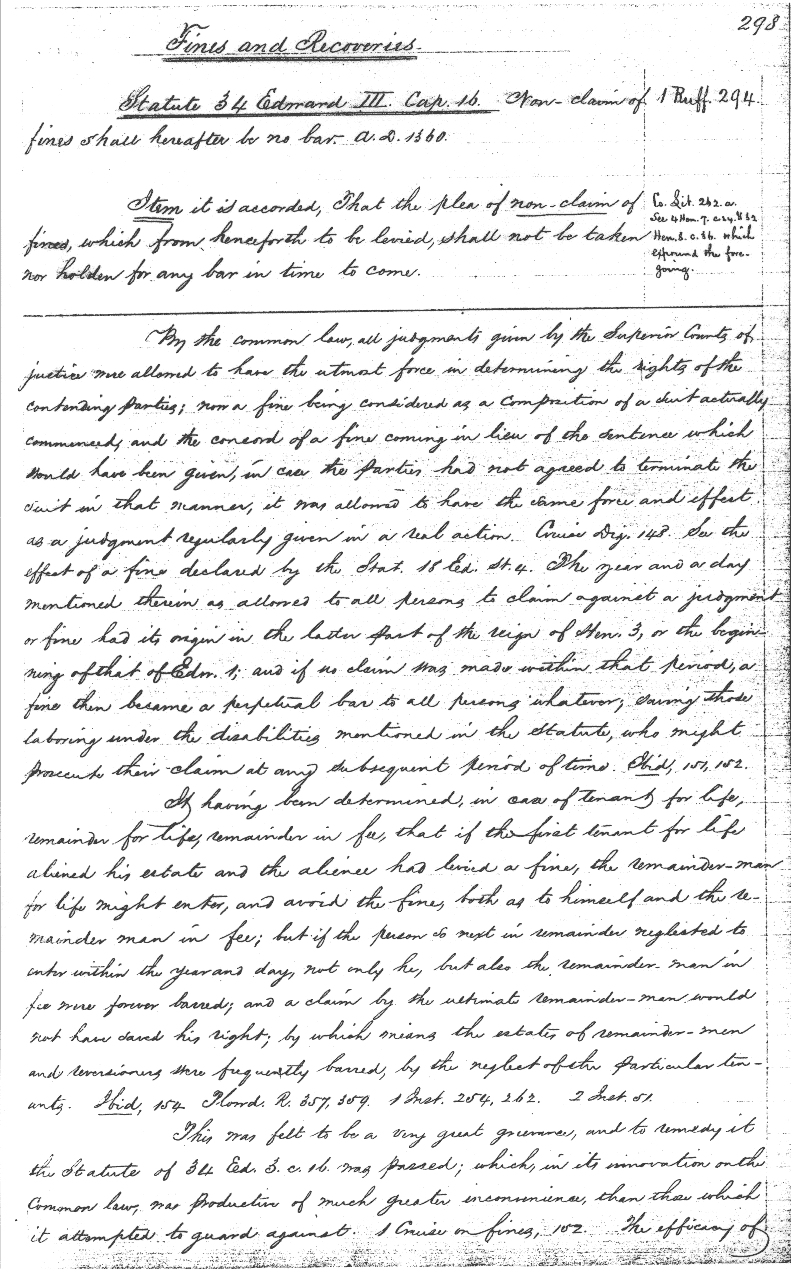 298
Fines and Recoveries.
Statute 34 Edward III. Cap. 16. Non-claim of
fines shall hereafter be no bar. A.D. 1360.
1 Ruff. 294.
Item it is accorded, That the plea of non-claim of
fines, which from henceforth to be levied, shall not be taken
nor holden for any bar in time to come.
Co. Lit. 262. a.
See 4 Hen. 7. c. 24. & 32
Hen. 8. c. 36. which
expound the fore-
going.
By the common law, all judgments given by the Superior Courts of
justice were allowed to have the utmost force in determining the rights of the
contending parties; now a fine being considered as a composition of a suit actually
commenced, and the concord of a fine coming in lieu of the sentence which
would have been given, in case the parties had not agreed to terminate the
suit in that manner, it was allowed to have the same force and effect
as a judgment regularly given in a real action. Cruise Dig. 148. See the
effect of a fine declared by the Stat. 18 Ed. St. 4. The year and a day
mentioned therein as allowed to all persons to claim against a judgment
or fine had its origin in the latter part of the reign of Hen. 3, or the begin-
ning of that of Edw. 1; and if no claim was made within that period, a
fine then became a perpetual bar to all persons whatever; saving those
laboring under the disabilities mentioned in the Statute, who might
prosecute their claim at any subsequent period of time. Ibid, 151, 152.
It having been determined, in case of tenant for life,
remainder for life, remainder in fee, that if the first tenant for life
aliened his estate and the alienee had levied a fine, the remainder-man
for life might enter, and avoid the fine, both as to himself and the re-
mainder man in fee; but if the person so next in remainder neglected to
enter within the year and day, not only he, but also the remainder-man in
fee were forever barred; and a claim by the ultimate remainder-man would
not have saved his right; by which means the estates of remainder-men
and reversioners were frequently barred, by the neglect of the particular ten-
ants. Ibid, 154 Plowd. R. 357, 359. 1 Inst. 254, 262. 2 Inst. 51.
This was felt to be a very great grievance, and to remedy it
the Statute of 34 Ed. 3. c. 16. was passed; which, in its innovation on the
Common law, was productive of much greater inconvenience, than those which
it attempted to guard against. 1 Cruise on fines, 152. The efficacy of